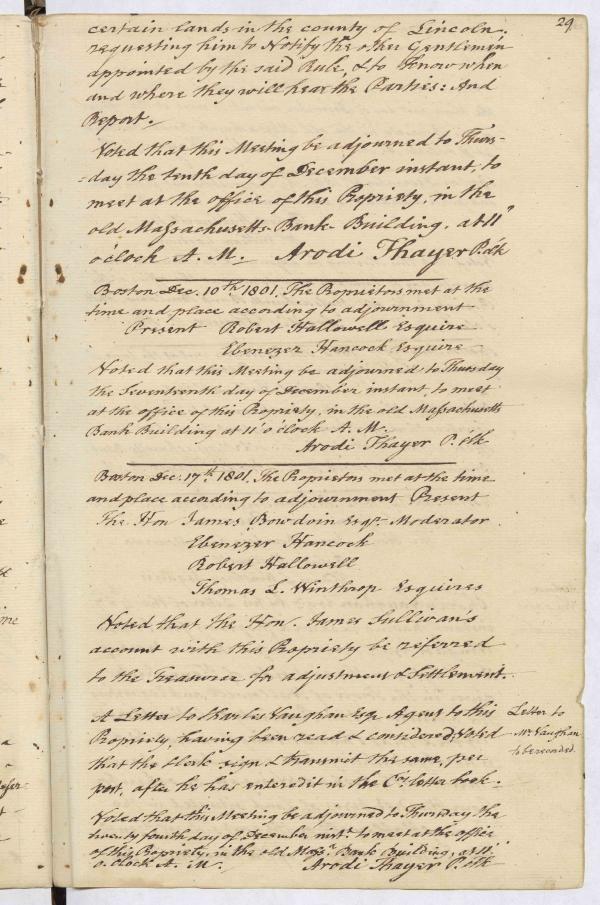 29
certain lands in the county of Lincoln,
requesting him to Notify the other Gentlemen
appointed by the said Rule, & to know when
and where they will hear the Parties: And
Report.
Voted that this Meeting be adjourned to Thurs-
-day the tenth day of December instant, to
meet at the office of this Propriety, in the
old Massachusetts-Bank-Building, at 11
o'clock A. M. Arodi Thayer P. clk
Boston Dec. 10th 1801. The Proprietors met at the
time and place according to adjournment
Present Robert Hallowell Esquire
Ebenezer Hancock Esquire
Voted that this Meeting be adjourned to Thursday
the Seventeenth day of December instant, to meet
at the office of this Propriety, in the old Massachusetts
Bank Building at 11 o'clock A. M.
Arodi Thayer P. clk
Boston Dec. 17th 1801. The Proprietors met at the time
and place according to adjournment Present
The Hon James Bowdoin Esqr. Moderator
Ebenezer Hancock
Robert Hallowell
Thomas L. Winthrop Esquires
Voted that the Hon. James Sullivan's
account with this Propriety be referred
to the Treasurer for adjustment & Settlement.
A Letter to Charles Vaughan Esqr Agent to this
Propriety, having been read & considered, Voted
that the Clerk sign & transmit the same, per
post, after he has entered it in the Co's letter book.
Letter to
Mr. Vaughan
to be recorded.
Voted that this Meeting be adjourned to Thursday the
twenty fourth day of December inst. to meet at the office
of this Propriety, in the old Massa. Bank Building, at 11
o.Clock A. M. Arodi Thayer P. clk